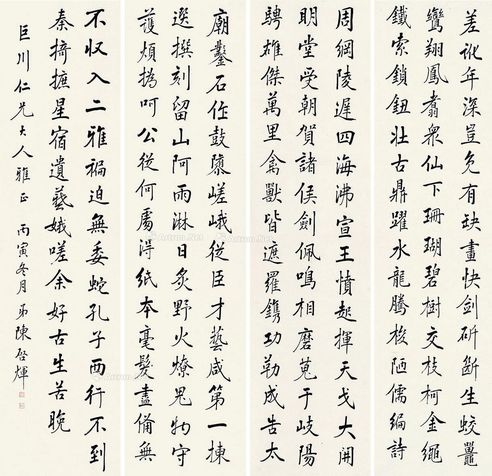 差訛年深豈免有缺畫快劍斫斷生蛟鼉
鸞翔鳳翥衆仙下珊瑚碧樹交枝柯金繩
鐵索鎖鈕壯古鼎躍水龍騰梭陋儒編詩
周綱陵遲四海沸宣王憤起揮天戈大開
明堂受朝賀諸侯劍佩鳴相磨蒐于岐陽
騁雄傑萬里禽獸皆遮羅鐫功勒成告太
廟鑿石作鼓隳嵯峨從臣才藝咸第一揀
選撰刻留山阿雨淋日炙野火燎鬼物守
護煩撝呵公從何處得紙本毫髮盡備無
不収入二雅褊迫無委蛇孔子西行不到
秦掎摭星宿遺藝娥嗟余好古生苦晚
巨川仁兄大人雅正 丙寅冬月弟陳啓煇